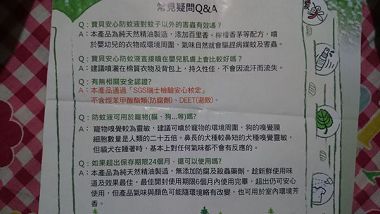 常見疑問Q&A
Q：寶貝安心防蚊液對蚊子以外的害蟲有效嗎？
A：本產品為純天然精油製造，添加百里香、檸檬香茅等配方，噴
於嬰幼兒的衣物或環境周圍，氣味自然就會驅趕病媒蚊及害蟲。
Q：寶貝安心防蚊液直接噴在嬰兒肌膚上會比較好嗎？
A：建議噴灑在棉質衣物及背包上，持久性佳，不會因流汗而流失。
Q：有無相關安全認證？
A：本產品通過「SGS瑞士檢驗安心檢定」
不含烷苯甲酸酯類(防腐劑)、DEET(避敵)。
Q：防蚊液可用於寵物(貓、狗...等)嗎？
A：寵物嗅覺較為靈敏，建議可噴於寵物的環境周圍，狗的嗅覺腺
細胞數量是人類的二十五倍，鼻長的犬種較鼻短的犬種嗅覺靈敏，
但貓犬在雖著時，基本上對任何氣味都不會有反應。
Q：如果超出保存期限24個月，還可以使用嗎？
A：本產品為純天然精油製造，無添加防腐及殺蟲藥劑，趁新鮮使用味
道及效果最佳，最佳開封使用期限6個月內使用完畢，超出仍可安心使
用，但產品氣味與顏色可能隨環境略有改變，也可用於室內環境芳
香。